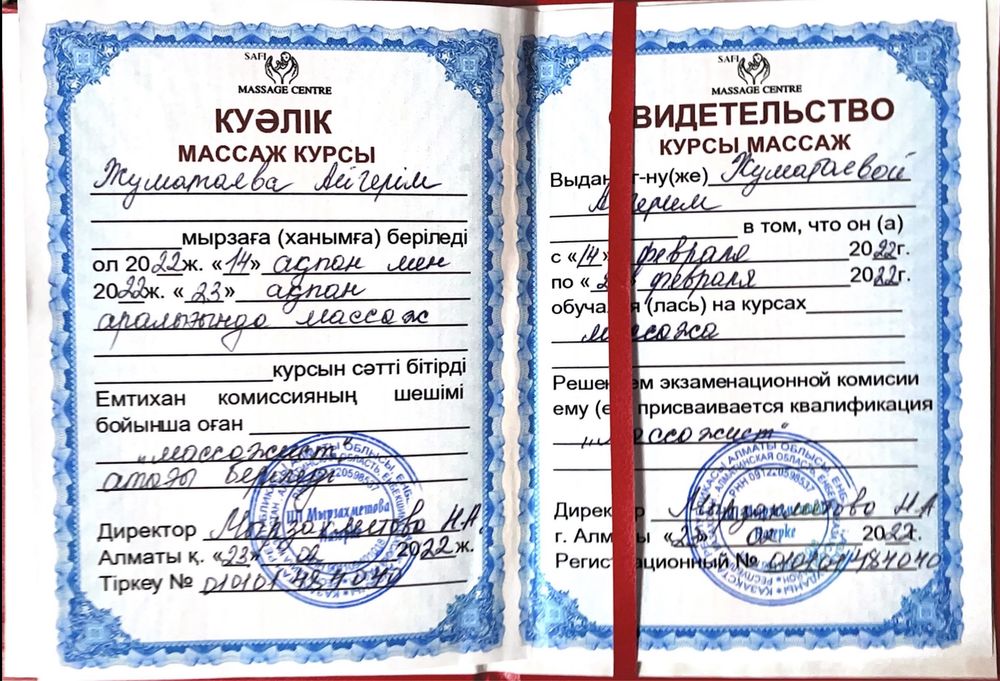 SAFI
MASSAGE CENTRE
КУӘЛІК
МАССАЖ КУРСЫ
Жуматаева Айгерім
мырзаға (ханымға) беріледі
ол 2022ж. «14» ақпан мен
2022ж. «23» ақпан
аралығында массаж
курсын сәтті бітірді
Емтихан комиссияның шешімі
бойынша оған
"массажист"
атағы берілді
Директор Мырзахметова Н.А
Алматы қ. «23» 02 2022ж.
Тіркеу №
ИП Мырзахметова
SAFI
MASSAGE CENTRE
ВИДЕТЕЛЬСТВО
КУРСЫ МАССАЖ
Выдан г-ну(же) Жуматаевой
в том, что он (а)
с «14» февраля 2022г.
по «2 » февраля 2022г.
обуча я (лась) на курсах
массажа
Решен ем экзаменационной комисии
ему (е присваивается квалификация
"массажист"
Дирек Мырзахметова Н.А
г. Алм ы «23» 02 2022г.
Регис ационный №